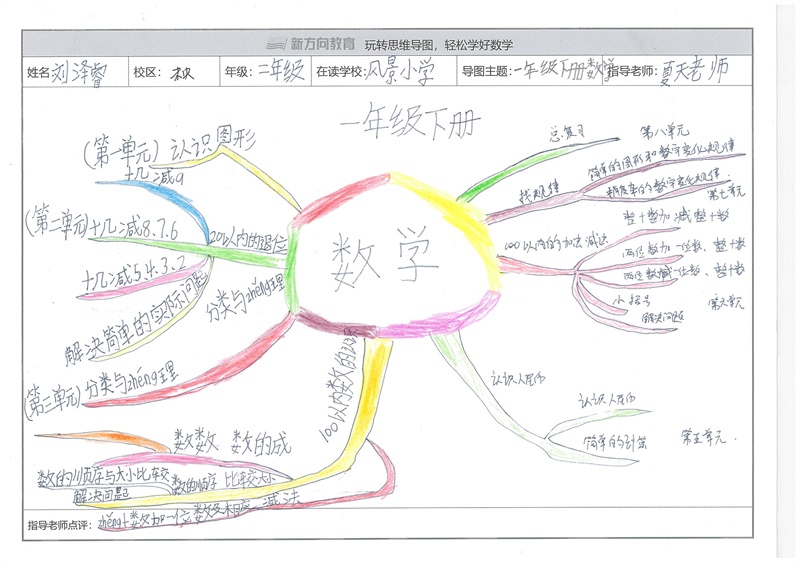 新方向教育 玩转思维导图，轻松学好数学
姓名 刘泽睿 校区： 年级：二年级 在读学校：风景小学 导图主题:一年级下册数学 指导老师：夏天老师
一年级下册
数学
(第一单元) 认识图形
20以内的退位
十几减9
(第二单元) 十几减8.7.6
十几减5.4.3.2
解决简单的实际问题
分类与zhěng王里
(第三单元) 分类与zhěng王里
100以内数的认识
数数 数的成
数的顺序与大小比较
数的顺序 比较大小
解决问题
zhěng十数加一位数及相应 减法
总复习 第八单元
找规律
简单的图形和数字变化规律
稍复杂的数字变化规律.
第七单元
100以内的加法减法
整十数加.减整十数
两位数加一位数、整十数
两位数减一位数、整十数
小括号
解决问题
第六单元
认识人民币
认识人民币
简单的计算 第五单元.
指导老师点评：